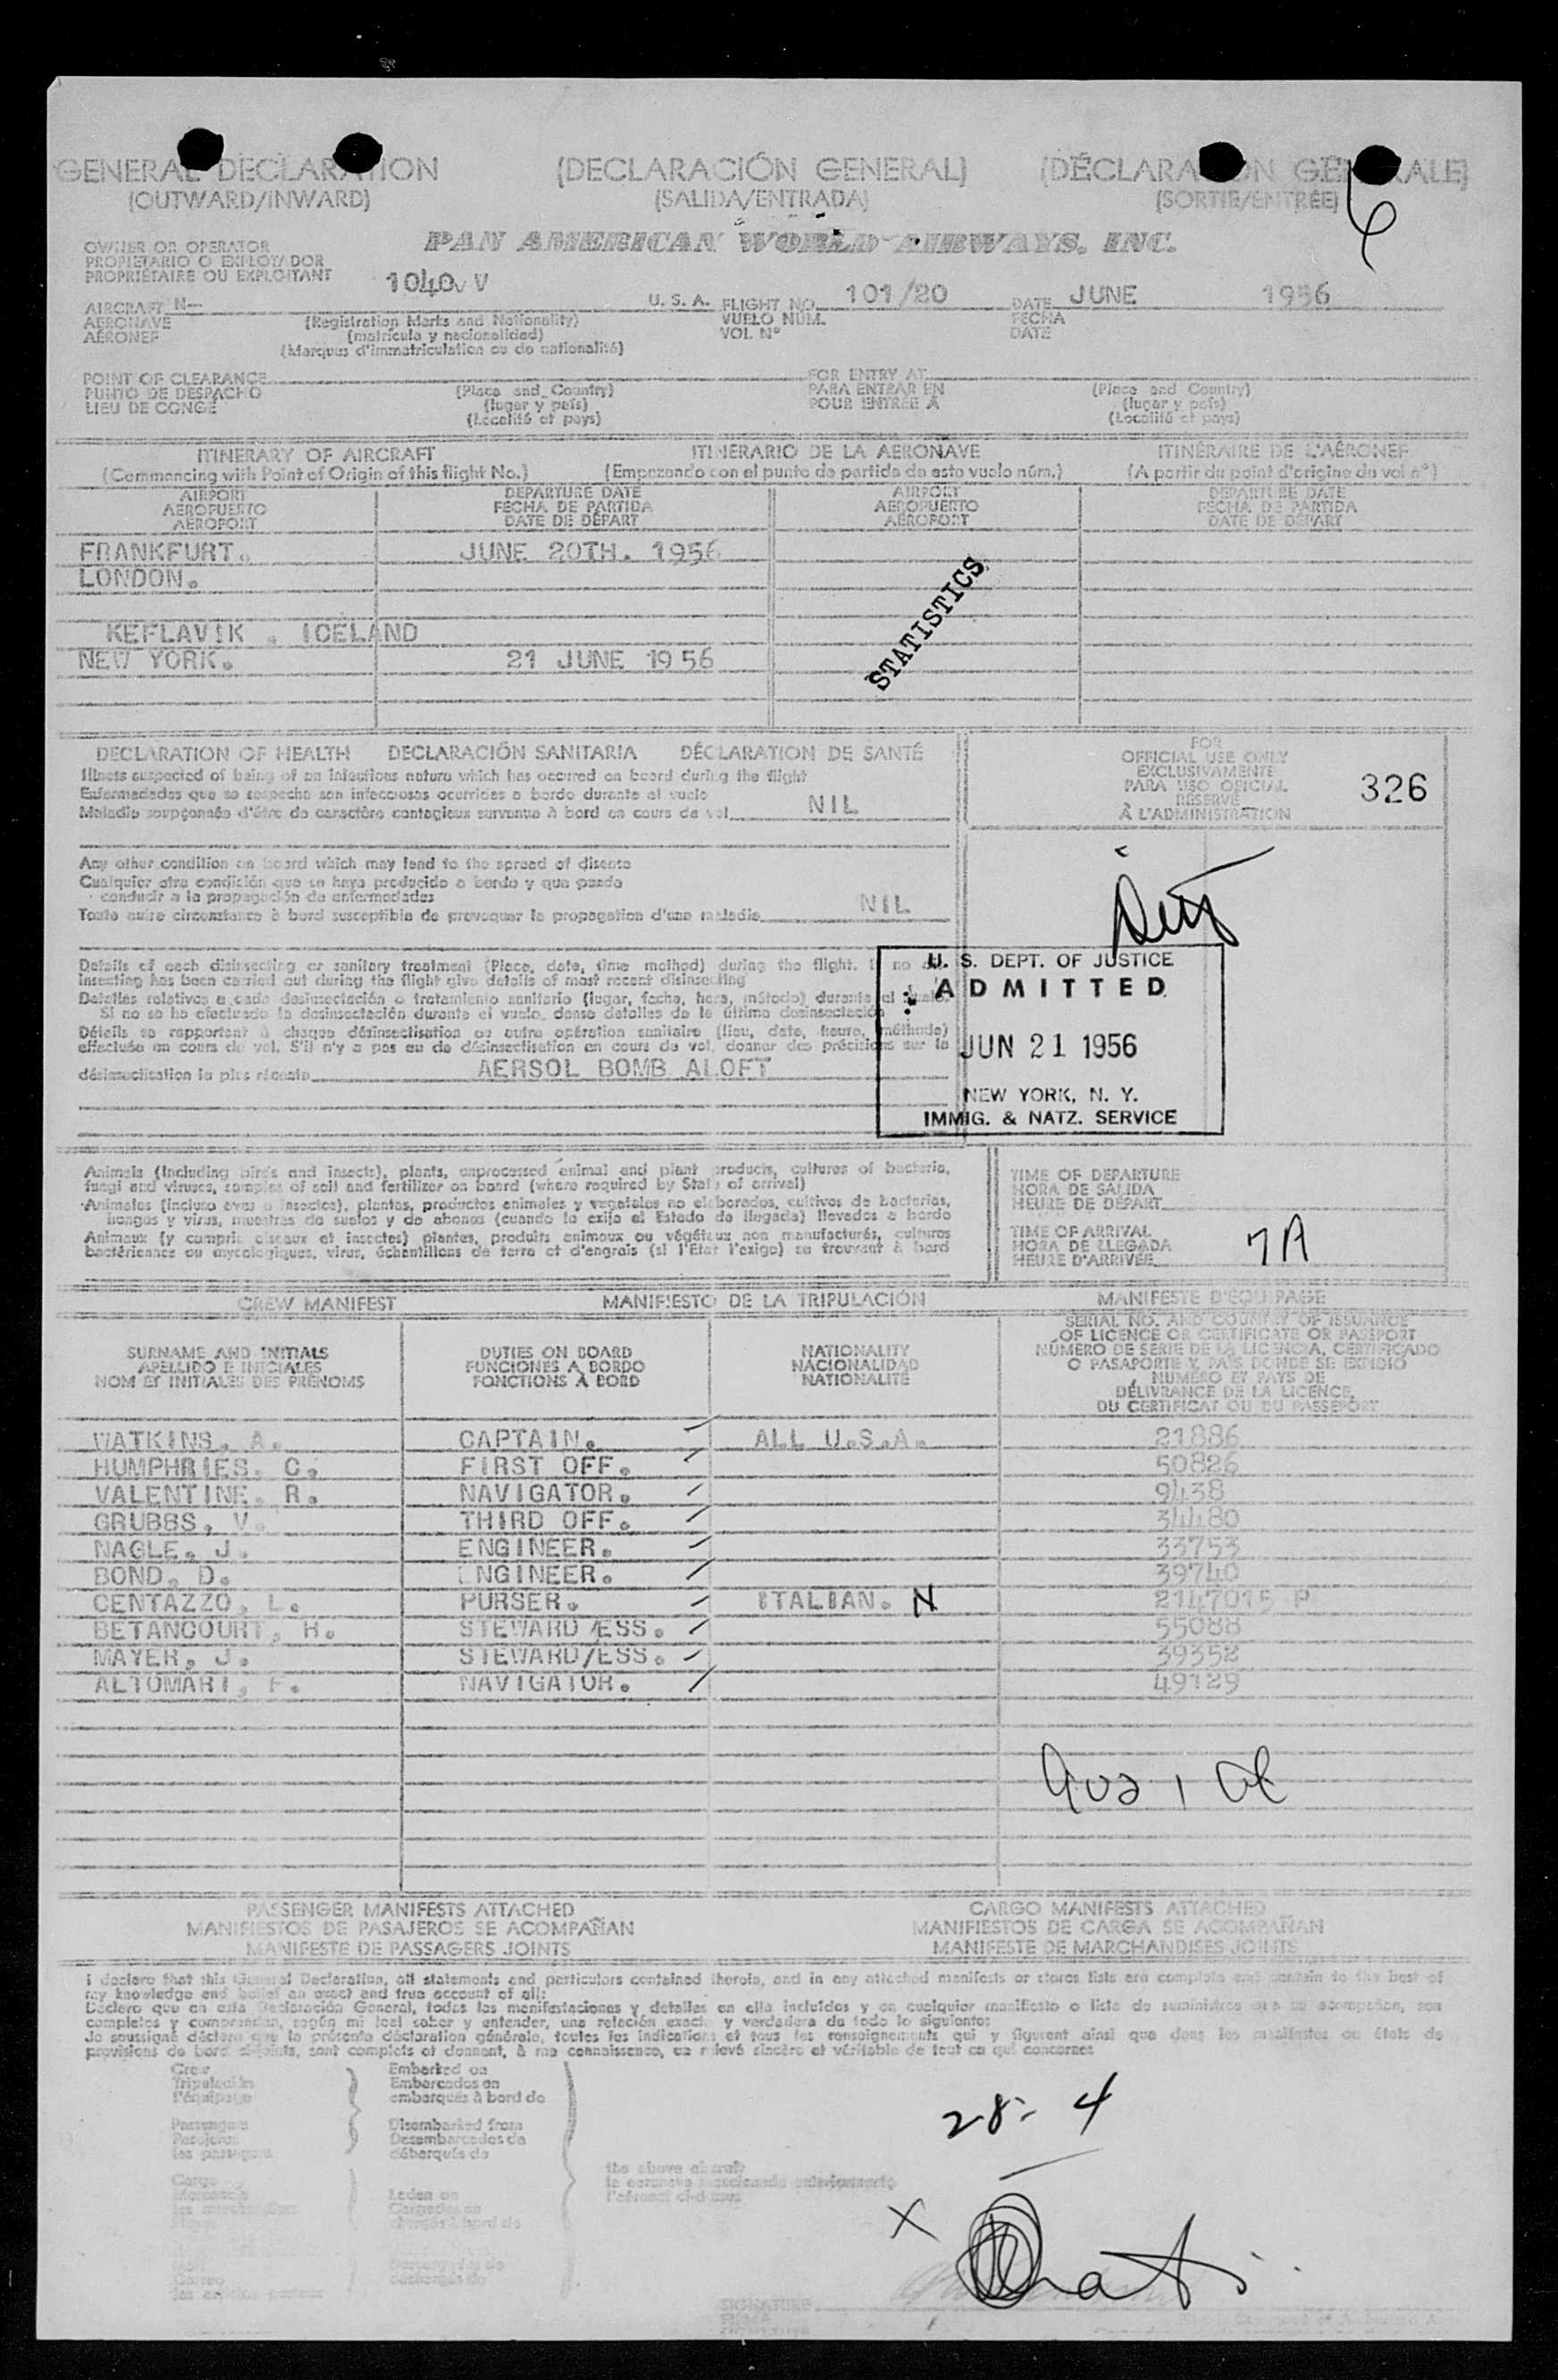 GENERAL DECLARATION (DECLARACIÓN GENERAL) (DÉCLARATION GÉNÉRALE)
(OUTWARD/INWARD) (SALIDA/ENTRADA) (SORTIE/ENTRÉE) 6
OWNER OR OPERATOR PAN AMERICAN WORLD AIRWAYS, INC.
PROPIETARIO O EXPLOTADOR
PROPRIÉTAIRE OU EXPLOITANT
AIRCRAFT N— 1040 V U. S. A. FLIGHT NO. 101/20 DATE JUNE 1956
AERONAVE (Registration Marks and Nationality) VUELO NÚM. FECHA
AÉRONEF (matrícula y nacionalidad) VOL N° DATE
(Marques d'immatriculation ou de nationalité)
POINT OF CLEARANCE FOR ENTRY AT
PUNTO DE DESPACHO (Place and Country) PARA ENTRAR EN (Place and Country)
LIEU DE CONGÉ (lugar y país) POUR ENTRÉE A (lugar y país)
(Localité et pays) (Localité et pays)
ITINERARY OF AIRCRAFT ITINERARIO DE LA AERONAVE ITINÉRAIRE DE L'AÉRONEF
(Commencing with Point of Origin of this flight No.) (Empezando con el punto de partida de este vuelo núm.) (A partir du point d'origine du vol n°)
AIRPORT DEPARTURE DATE AIRPORT DEPARTURE DATE
AEROPUERTO FECHA DE PARTIDA AEROPUERTO FECHA DE PARTIDA
AÉROPORT DATE DE DÉPART AÉROPORT DATE DE DÉPART
FRANKFURT. JUNE 20TH. 1956
LONDON.
STATISTICS
KEFLAVIK , ICELAND
NEW YORK. 21 JUNE 1956
DECLARATION OF HEALTH DECLARACIÓN SANITARIA DÉCLARATION DE SANTÉ
Illness suspected of being of an infectious nature which has occured on board during the flight
Enfermedades que se sospecha son infecciosas ocurridas a bordo durante el vuelo
Maladie soupçonnée d'être de caractère contagieux survenue à bord en cours de vol NIL
FOR
OFFICIAL USE ONLY
EXCLUSIVAMENTE
PARA USO OFICIAL
RÉSERVÉ
À L'ADMINISTRATION
326
Any other condition on board which may lend to the spread of disease
Cualquier otra condición que se haya producido a bordo y que pueda
conducir a la propagación de enfermedades
Toute autre circonstance à bord susceptible de provoquer la propagation d'une maladie NIL
Details of each disinsecting or sanitary treatment (Place, date, time method) during the flight. If no
insecting has been carried out during the flight give details of most recent disinsecting
Detalles relativos a cada desinsectación o tratamiento sanitario (lugar, fecha, hora, método) durante el vuelo.
Si no se ha efectuado la desinsectación durante el vuelo, dense detalles de la última desinsectación
Détails se rapportant à chaque désinsectisation ou autre opération sanitaire (lieu, date, heure, méthode)
effectuée en cours de vol. S'il n'y a pas eu de désinsectisation en cours de vol, donner des précisions sur la
désinsectisation la plus récente AERSOL BOMB ALOFT
U. S. DEPT. OF JUSTICE
ADMITTED
JUN 21 1956
NEW YORK, N. Y.
IMMIG. & NATZ. SERVICE
Animals (including birds and insects), plants, unprocessed animal and plant products, cultures of bacteria,
fungi and viruses, samples of soil and fertilizer on board (where required by State of arrival)
Animales (incluso aves e insectos), plantas, productos animales y vegetales no elaborados, cultivos de bacterias,
hongos y virus, muestras de suelos y de abonos (cuando lo exija el Estado de llegada) llevados a bordo
Animaux (y compris oiseaux et insectes) plantes, produits animaux ou végétaux non manufacturés, cultures
bactériennes ou mycologiques, virus, échantillons de terre et d'engrais (si l'Etat l'exige) se trouvant à bord
TIME OF DEPARTURE
HORA DE SALIDA
HEURE DE DÉPART
TIME OF ARRIVAL
HORA DE LLEGADA 7A
HEURE D'ARRIVÉE
CREW MANIFEST MANIFIESTO DE LA TRIPULACIÓN MANIFESTE D'EQUIPAGE
SURNAME AND INITIALS
APELLIDO E INICIALES
NOM ET INITIALES DES PRÉNOMS
DUTIES ON BOARD
FUNCIONES A BORDO
FONCTIONS À BORD
NATIONALITY
NACIONALIDAD
NATIONALITÉ
SERIAL NO. AND COUNTRY OF ISSUANCE
OF LICENCE OR CERTIFICATE OR PASSPORT
NÚMERO DE SERIE DE LA LICENCIA, CERTIFICADO
O PASAPORTE Y PAIS DONDE SE EXPIDIÓ
NUMÉRO ET PAYS DE
DÉLIVRANCE DE LA LICENCE,
DU CERTIFICAT OU DU PASSEPORT
WATKINS, A. CAPTAIN. ALL U.S.A. 21886
HUMPHRIES, C. FIRST OFF. 50826
VALENTINE, R. NAVIGATOR. 9438
GRUBBS, V. THIRD OFF. 34480
NAGLE, J. ENGINEER. 33753
BOND, D. ENGINEER. 39740
CENTAZZO, L. PURSER. ITALIAN. N 2147015 P
BETANCOURT, H. STEWARD/ESS. 55088
MAYER, J. STEWARD/ESS. 39352
ALTOMARI, F. NAVIGATOR. 49129
PASSENGER MANIFESTS ATTACHED CARGO MANIFESTS ATTACHED
MANIFIESTOS DE PASAJEROS SE ACOMPAÑAN MANIFIESTOS DE CARGA SE ACOMPAÑAN
MANIFESTE DE PASSAGERS JOINTS MANIFESTE DE MARCHANDISES JOINTS
I declare that this General Declaration, all statements and particulars contained therein, and in any attached manifests or stores lists are complete and contain to the best of
my knowledge and belief an exact and true account of all:
Declaro que en esta Declaración General, todas las manifestaciones y detalles en ella incluídos y en cualquier manifiesto o lista de suministros que se acompañan, son
completos y comprenden, según mi leal saber y entender, una relación exacta y verdadera de todo lo siguiente:
Je soussigné déclare que la présente déclaration générale, toutes les indications et tous les renseignements qui y figurent ainsi que dans les manifestes ou états de
provisions de bord ci-joints, sont complets et donnent, à ma connaissance, un relevé sincère et véritable de tout ce qui concerne:
Crew Embarked on
Tripulación Embarcados en
l'équipage embarqués à bord de
Passengers Disembarked from
Pasajeros Desembarcados de
les passagers débarqués de
28- 4
Cargo the above aircraft
Laden on
X
SIGNATURE
FIRMA